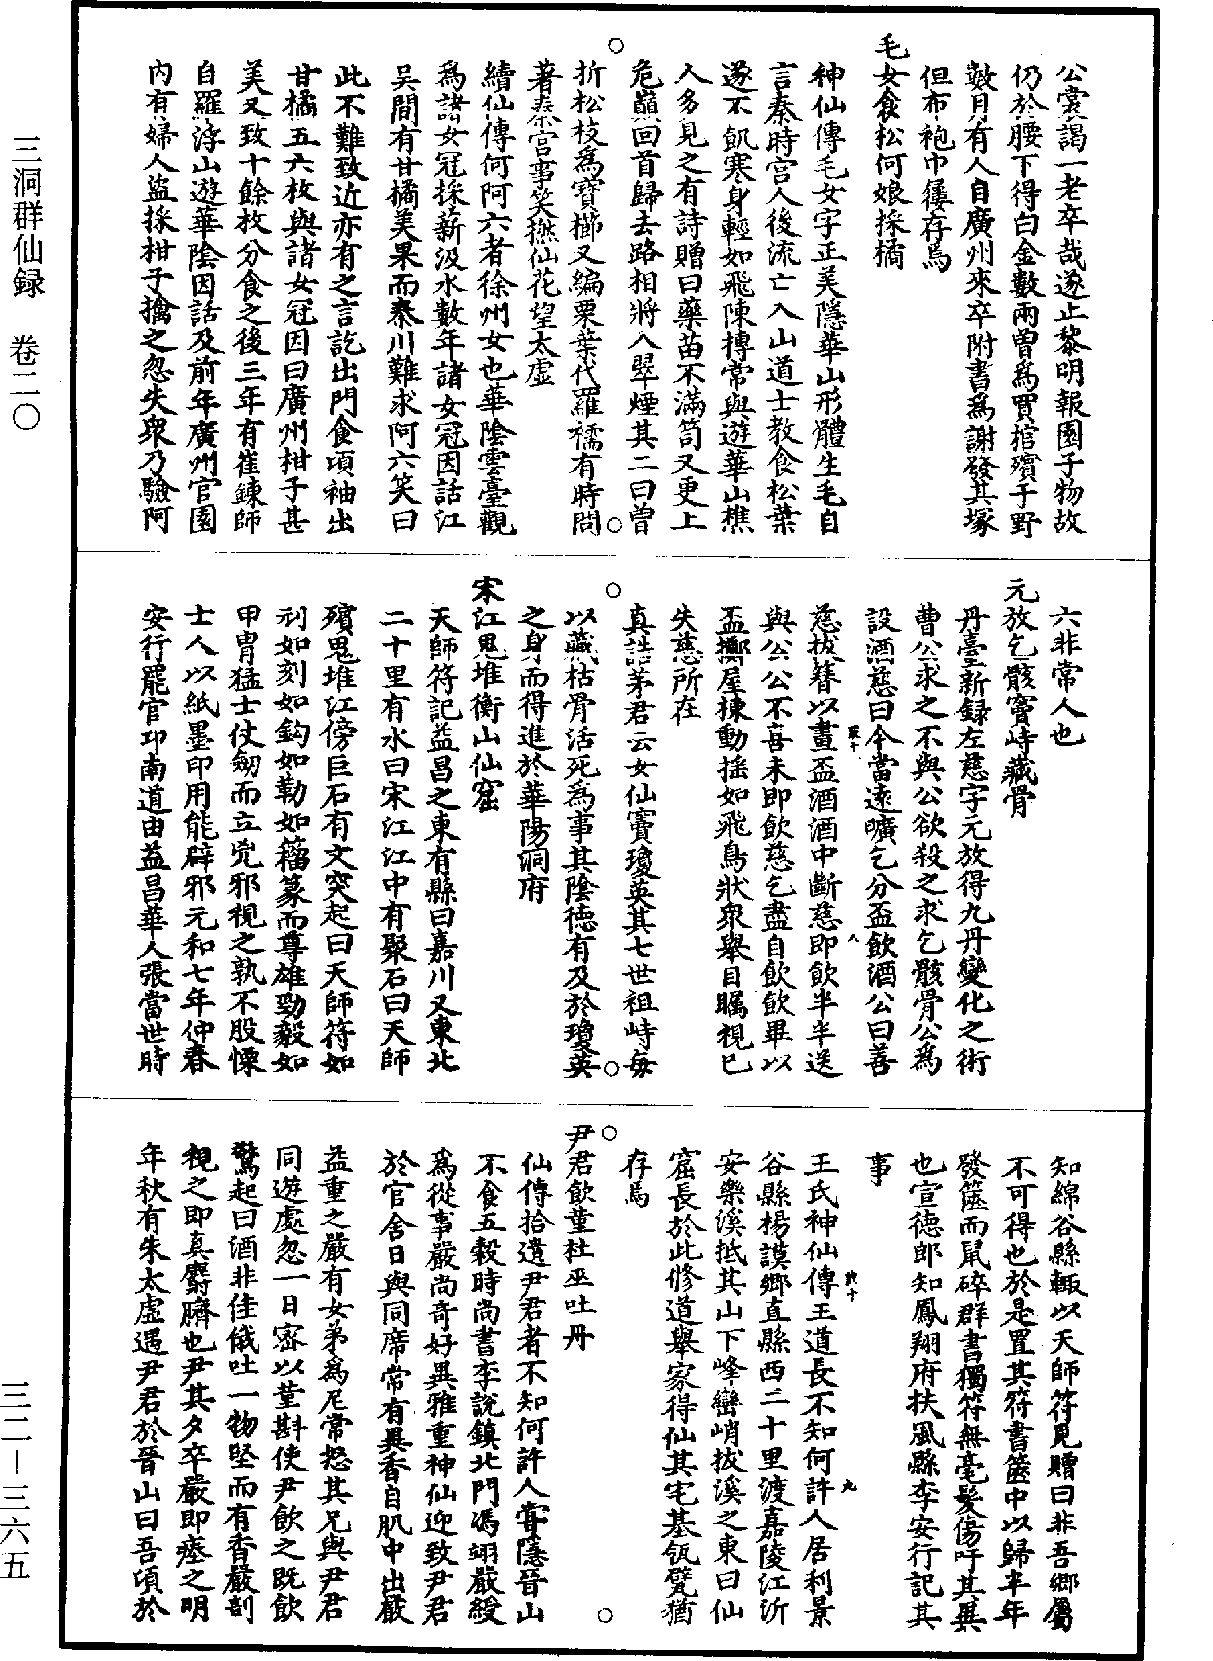 三洞群仙録 卷二〇
三二－三六五
公裳謁一老卒哉遂止黎明報園子物故
仍於腰下得白金數兩曽爲買棺殯于野
數月有人自廣州來卒附書爲謝發其塚
但布袍巾屨存焉
毛女食松何娘採橘
神仙傳毛女字正美隱華山形體生毛自
言秦時宫人後流亡入山道士教食松葉
遂不飢寒身輕如飛陳摶常與遊華山樵
人多見之有詩贈曰藥苗不滿笥又更上
危巔回首歸去路相將入翠煙其二曰曽
折松枝爲寶櫛又編栗葉代羅襦有時問
著秦宫事笑撚仙花望太虛
續仙傳何阿六者徐州女也華陰雲臺觀
爲諸女冠採薪汲水數年諸女冠因話江
吴間有甘橘美果而秦川難求阿六笑曰
此不難致近亦有之言訖出門食頃袖出
甘橘五六枚與諸女冠因曰廣州柑子甚
美又致十餘枚分食之後三年有崔鍊師
自羅浮山遊華陰因話及前年廣州官園
内有婦人盜採柑子擒之忽失衆乃驗阿
六非常人也
元放乞骸竇峙藏骨
丹臺新録左慈字元放得九丹變化之術
曹公求之不與公欲殺之求乞骸骨公爲
設酒慈曰今當遠曠乞分盃飲酒公曰善
慈拔簪以畫盃酒酒中斷慈即飲半半送
與公公不喜未即飲慈乞盡自飲飲畢以
盃擲屋棟動揺如飛鳥狀衆舉目矚視已
失慈所在
真誥茅君云女仙竇瓊英其七世祖峙毎
以藏枯骨活死為事其陰德有及於瓊英
之身而得進於華陽洞府
宋江鬼堆衡山仙窟
天師符記益昌之東有縣曰嘉川又東北
二十里有水曰宋江江中有聚石曰天師
殯鬼堆江傍巨石有文突起曰天師符如
刋如刻如鈎如勒如籀篆而尊雄勁毅如
甲胄猛士仗劒而立兇邪視之孰不股慄
士人以紙墨印用能辟邪元和七年仲春
安行罷官卭南道由益昌華人張當世時
知綿谷縣輙以天師符見贈曰非吾鄉屬
不可得也於是置其符書篋中以歸半年
發篋而鼠碎群書獨符無毫髮傷吁其異
也宣德郎知鳳翔府扶風縣李安行記其
事
王氏神仙傳王道長不知何許人居利景
谷縣楊謨鄉直縣西二十里渡嘉陵江沂
安樂溪抵其山下峰巒峭拔溪之東曰仙
窟長於此修道舉家得仙其宅基瓴甓猶
存焉
尹君飲堇杜巫吐丹
仙傳拾遺尹君者不知何許人嘗隱晉山
不食五穀時尚書李説鎮北門馮翊嚴綬
爲從事嚴尚奇好異雅重神仙迎致尹君
於官舍日與同席常有異香自肌中出嚴
益重之嚴有女弟爲尼常怒其兄與尹君
同遊處忽一日密以堇斟使尹飲之既飲
驚起曰酒非佳俄吐一物堅而有香嚴剖
視之即真麝臍也尹其夕卒嚴即瘞之明
年秋有朱太虛遇尹君於晉山曰吾頃於